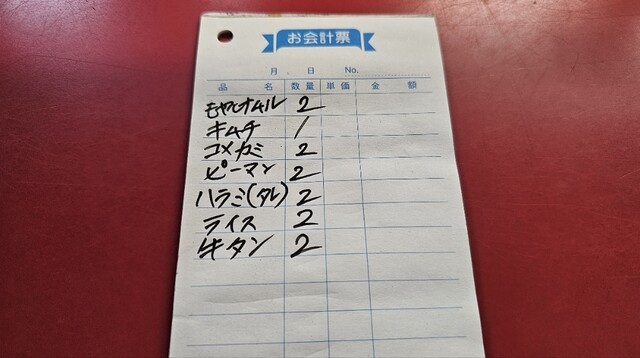 お会計票
月 日 No.
品名 数量 単価 金額
もやしナムル 2
キムチ 1
コメカミ 2
ピーマン 2
ハラミ(タレ) 2
ライス 2
牛タン 2